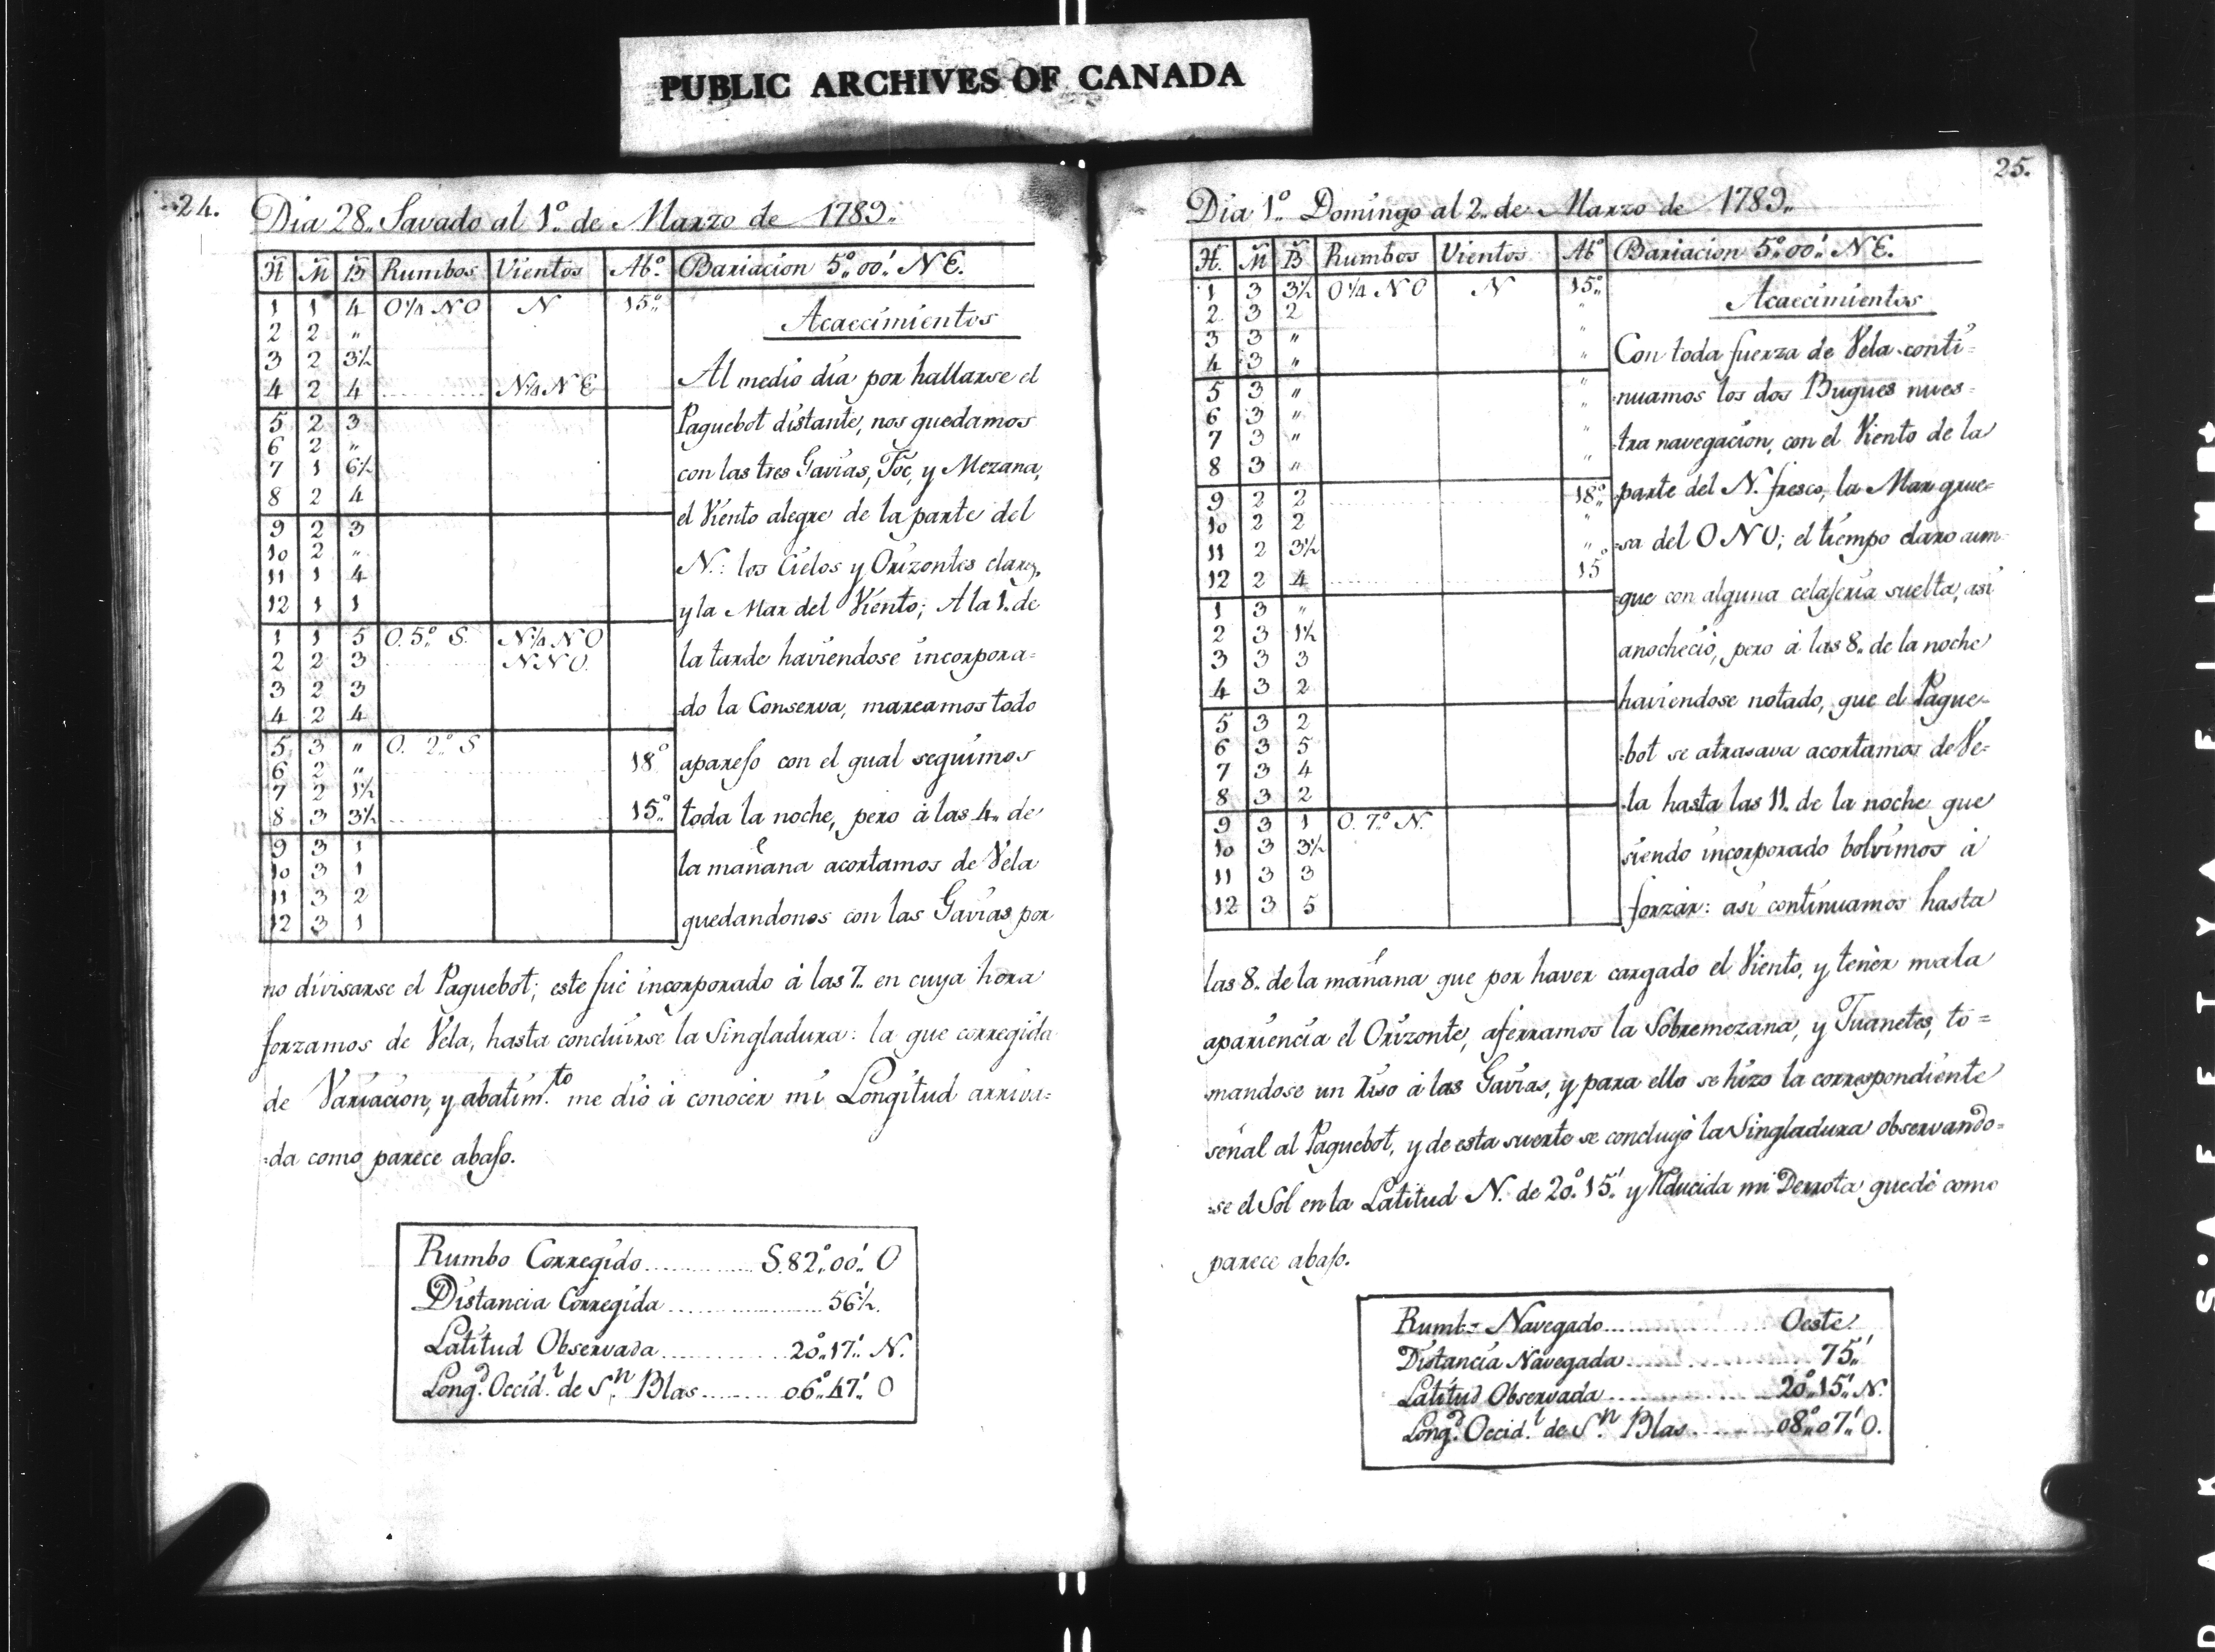 PUBLIC ARCHIVES OF CANADA
24.
Dia 28,, Savado al 1º,, de Marzo de 1789,,
H M B Rumbos Vientos Abº. Bariacion 5º,,00',, N E.
1 1 4 O¼NO N 15º,,
2 2 "
3 2 3½
4 2 4 N¼NE
5 2 3
6 2 "
7 1 6½
8 2 4
9 2 3
10 2 "
11 1 4
12 1 1
1 1 5 O. 5º,, S. N¼NO
2 2 3 NNO.
3 2 3
4 2 4
5 3 " O. 2º,, S
6 2 " 18º
7 2 1½
8 3 3½ 15º,,
9 3 1
10 3 1
11 3 2
12 3 1
Acaecimientos
Al medio dia por hallarse el
Paquebot distante, nos quedamos
con las tres Gavias, Foc, y Mezana,
el Viento alegre de la parte del
N.: los Cielos y Orizontes claros,
y la Mar del Viento; A la 1. de
la tarde haviendose incorpora=
do la Conserva, mareamos todo
aparejo con el qual seguimos
toda la noche, pero á las 4,, de
la mañana acortamos de Vela
quedandonos con las Gavias por
no divisarse el Paquebot; este fué incorporado á las 7,, en cuya hora
forzamos de Vela, hasta concluirse la Singladura: la que corregida
de Variacion, y abatim.to me dió á conocer mi Longitud arriva=
=da como parece abajo.
Rumbo Corregido ............ S.82º,,00',, O
Distancia Corregida ............ 56½.
Latitud Observada ............ 20º,,17',, N.
Long.d Occid.l de S.n Blas ........ 06º,,47',, O
25.
Dia 1º,, Domingo al 2,, de Marzo de 1789,,
H. M B Rumbos Vientos Abº Bariacion 5º,,00',, N E.
1 3 3½ O¼NO N 15º,,
2 3 2 "
3 3 " "
4 3 " "
5 3 " "
6 3 " "
7 3 " "
8 3 " "
9 2 2 18º,,
10 2 2 "
11 2 3½ "
12 2 4 15º
1 3 "
2 3 1½
3 3 3
4 3 2
5 3 2
6 3 5
7 3 4
8 3 2
9 3 1 O. 7º,, N.
10 3 3½
11 3 3
12 3 5
Acaecimientos
Con toda fuerza de Vela conti=
=nuamos los dos Buques nues=
=tra navegacion, con el Viento de la
parte del N. fresco, la Mar grue=
=sa del ONO; el tiempo claro aun
=que con alguna celajeria suelta, asi
anocheció, pero á las 8,, de la noche
haviendose notado, que el Paque=
=bot se atrasava acortamos de Ve=
=la hasta las 11,, de la noche que
siendo incorporado bolvimos á
forzár: asi continuamos hasta
las 8,, de la mañana que por haver cargado el Viento, y tenér mala
apariencia el Orizonte, aferramos la Sobremezana, y Juanetes, to=
mandose un Riso á las Gavias, y para ello se hizo la correspondiente
señal al Paquebot, y de esta suerte se concluyó la Singladura observando=
=se el Sol en la Latitud N. de 20º,,15',, y reducida mi Derrota quedé como
parece abajo.
Rumbo Navegado ............ Oeste.
Distancia Navegada ............ 75',,
Latitud Observada ............ 20º,,15',, N.
Long.d Occid.l de S.n Blas ........ 08º,,07',, O.